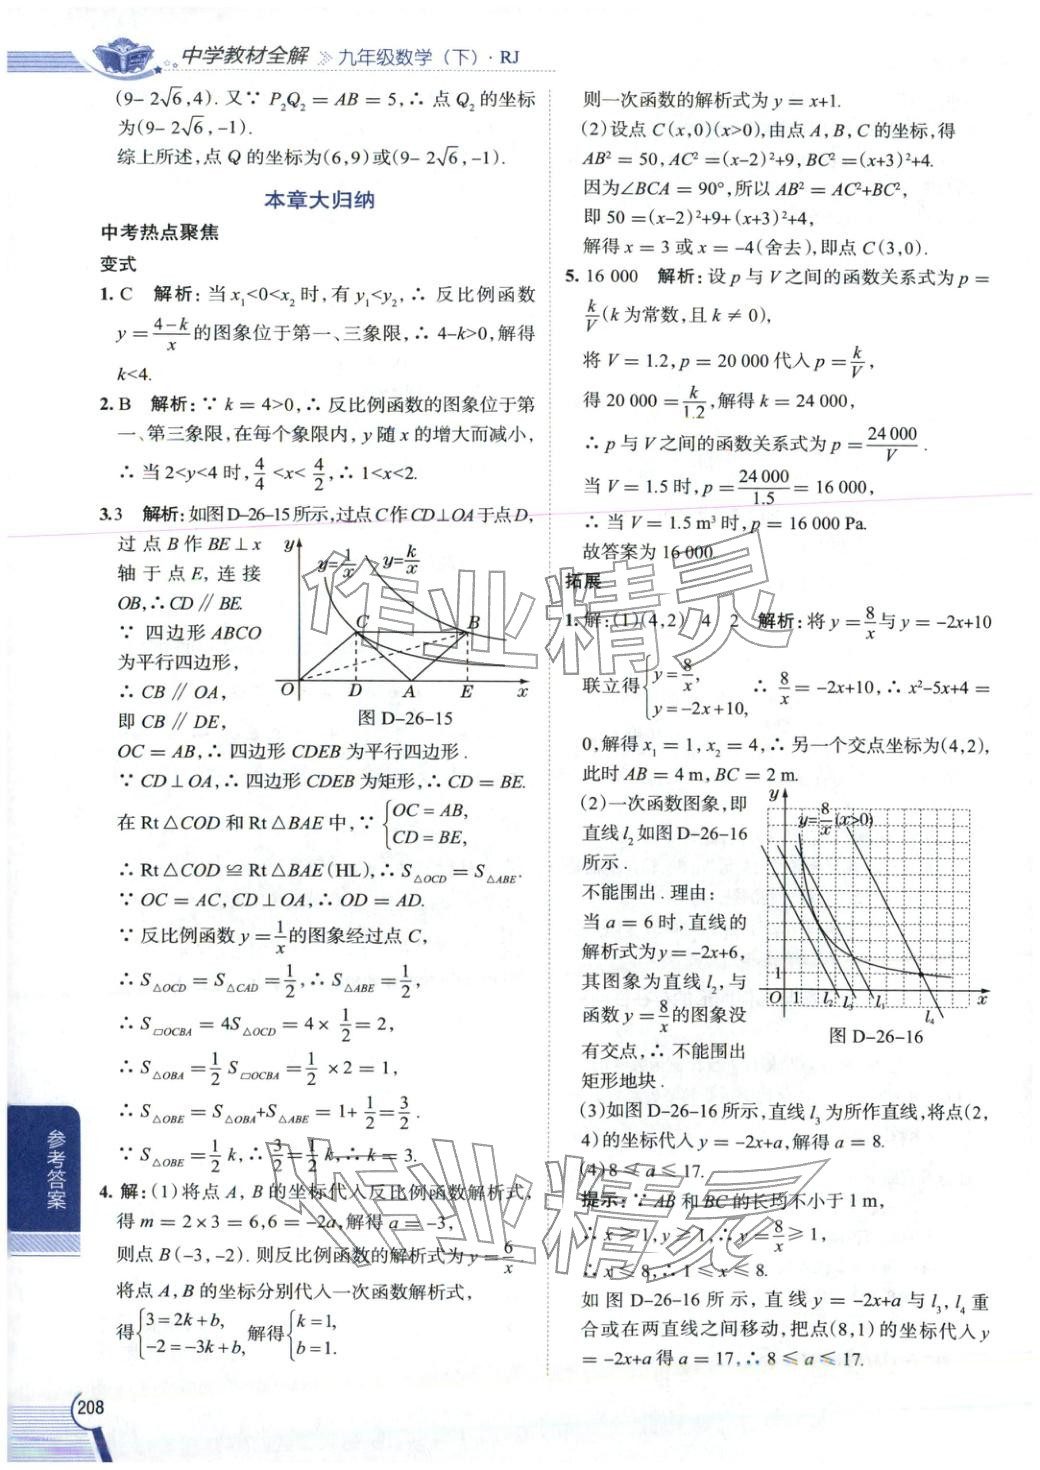 中学教材全解 九年级数学（下）· RJ
(9-2√6,4). 又∵ P₂Q₂ = AB = 5,∴ 点 Q₂ 的坐标
为(9-2√6,-1).
综上所述,点 Q 的坐标为(6,9)或(9-2√6,-1).
本章大归纳
中考热点聚焦
变式
1. C 解析: 当 x₁<0<x₂ 时,有 y₁<y₂,∴ 反比例函数
y = (4-k)/x 的图象位于第一、三象限,∴ 4-k>0,解得
k<4.
2. B 解析: ∵ k = 4>0,∴ 反比例函数的图象位于第
一、第三象限,在每个象限内, y 随 x 的增大而减小,
∴ 当 2<y<4 时, 4/4 <x< 4/2 ,∴ 1<x<2.
3. 3 解析: 如图 D-26-15 所示,过点 C 作 CD⊥OA 于点 D,
过点 B 作 BE⊥x
轴于点 E, 连接
OB,∴ CD∥BE.
∵ 四边形 ABCO
为平行四边形,
∴ CB∥OA,
即 CB∥DE,
y
y=1/x
y=k/x
C
B
O
D
A
E
x
图 D-26-15
OC = AB,∴ 四边形 CDEB 为平行四边形.
∵ CD⊥OA,∴ 四边形 CDEB 为矩形,∴ CD = BE.
在 Rt△COD 和 Rt△BAE 中, ∵ {OC = AB,
CD = BE,
∴ Rt△COD ≌ Rt△BAE (HL),∴ S△OCD = S△ABE.
∵ OC = AC, CD⊥OA,∴ OD = AD.
∵ 反比例函数 y = 1/x 的图象经过点 C,
∴ S△OCD = S△CAD = 1/2 ,∴ S△ABE = 1/2 ,
∴ S▱OCBA = 4S△OCD = 4× 1/2 = 2,
∴ S△OBA = 1/2 S▱OCBA = 1/2 ×2 = 1,
∴ S△OBE = S△OBA+S△ABE = 1+ 1/2 = 3/2 .
∵ S△OBE = 1/2 k,∴ 3/2 = 1/2 k,∴ k = 3.
4. 解: (1)将点 A, B 的坐标代入反比例函数解析式,
得 m = 2×3 = 6,6 = -2a,解得 a = -3,
则点 B(-3, -2). 则反比例函数的解析式为 y = 6/x
将点 A, B 的坐标分别代入一次函数解析式,
得{3 = 2k+b, 解得{k = 1,
-2 = -3k+b, b = 1.
则一次函数的解析式为 y = x+1.
(2)设点 C(x,0)(x>0),由点 A, B, C 的坐标,得
AB² = 50, AC² = (x-2)²+9, BC² = (x+3)²+4.
因为∠BCA = 90°,所以 AB² = AC²+BC²,
即 50 = (x-2)²+9+(x+3)²+4,
解得 x = 3 或 x = -4(舍去),即点 C(3,0).
5. 16 000 解析: 设 p 与 V 之间的函数关系式为 p =
k/V (k 为常数,且 k ≠ 0),
将 V = 1.2, p = 20 000 代入 p = k/V ,
得 20 000 = k/1.2 ,解得 k = 24 000,
∴ p 与 V 之间的函数关系式为 p = 24 000/V .
当 V = 1.5 时, p = 24 000/1.5 = 16 000,
∴ 当 V = 1.5 m³ 时, p = 16 000 Pa.
故答案为 16 000.
拓展
1. 解: (1)(4,2) 4 2 解析: 将 y = 8/x 与 y = -2x+10
联立得{y = 8/x, ∴ 8/x = -2x+10,∴ x²-5x+4 =
y = -2x+10,
0,解得 x₁ = 1, x₂ = 4,∴ 另一个交点坐标为(4,2),
此时 AB = 4 m, BC = 2 m.
(2)一次函数图象,即
直线 l₂ 如图 D-26-16
所示.
不能围出. 理由:
当 a = 6 时,直线的
解析式为 y = -2x+6,
其图象为直线 l₂,与
函数 y = 8/x 的图象没
有交点,∴ 不能围出
矩形地块.
y
y=8/x (x>0)
1
O 1 l₂ l₃ l₁ x
l₄
图 D-26-16
(3)如图 D-26-16 所示,直线 l₃ 为所作直线,将点(2,
4)的坐标代入 y = -2x+a,解得 a = 8.
(4)8 ≤ a ≤ 17.
提示: ∵ AB 和 BC 的长均不小于 1 m,
∴ x ≥ 1, y ≥ 1,∴ y = 8/x ≥ 1,
∴ x ≤ 8,∴ 1 ≤ x ≤ 8.
如图 D-26-16 所示, 直线 y = -2x+a 与 l₃, l₄ 重
合或在两直线之间移动,把点(8,1)的坐标代入 y
= -2x+a 得 a = 17,∴ 8 ≤ a ≤ 17.
参考答案
208
作业精灵
作业精灵